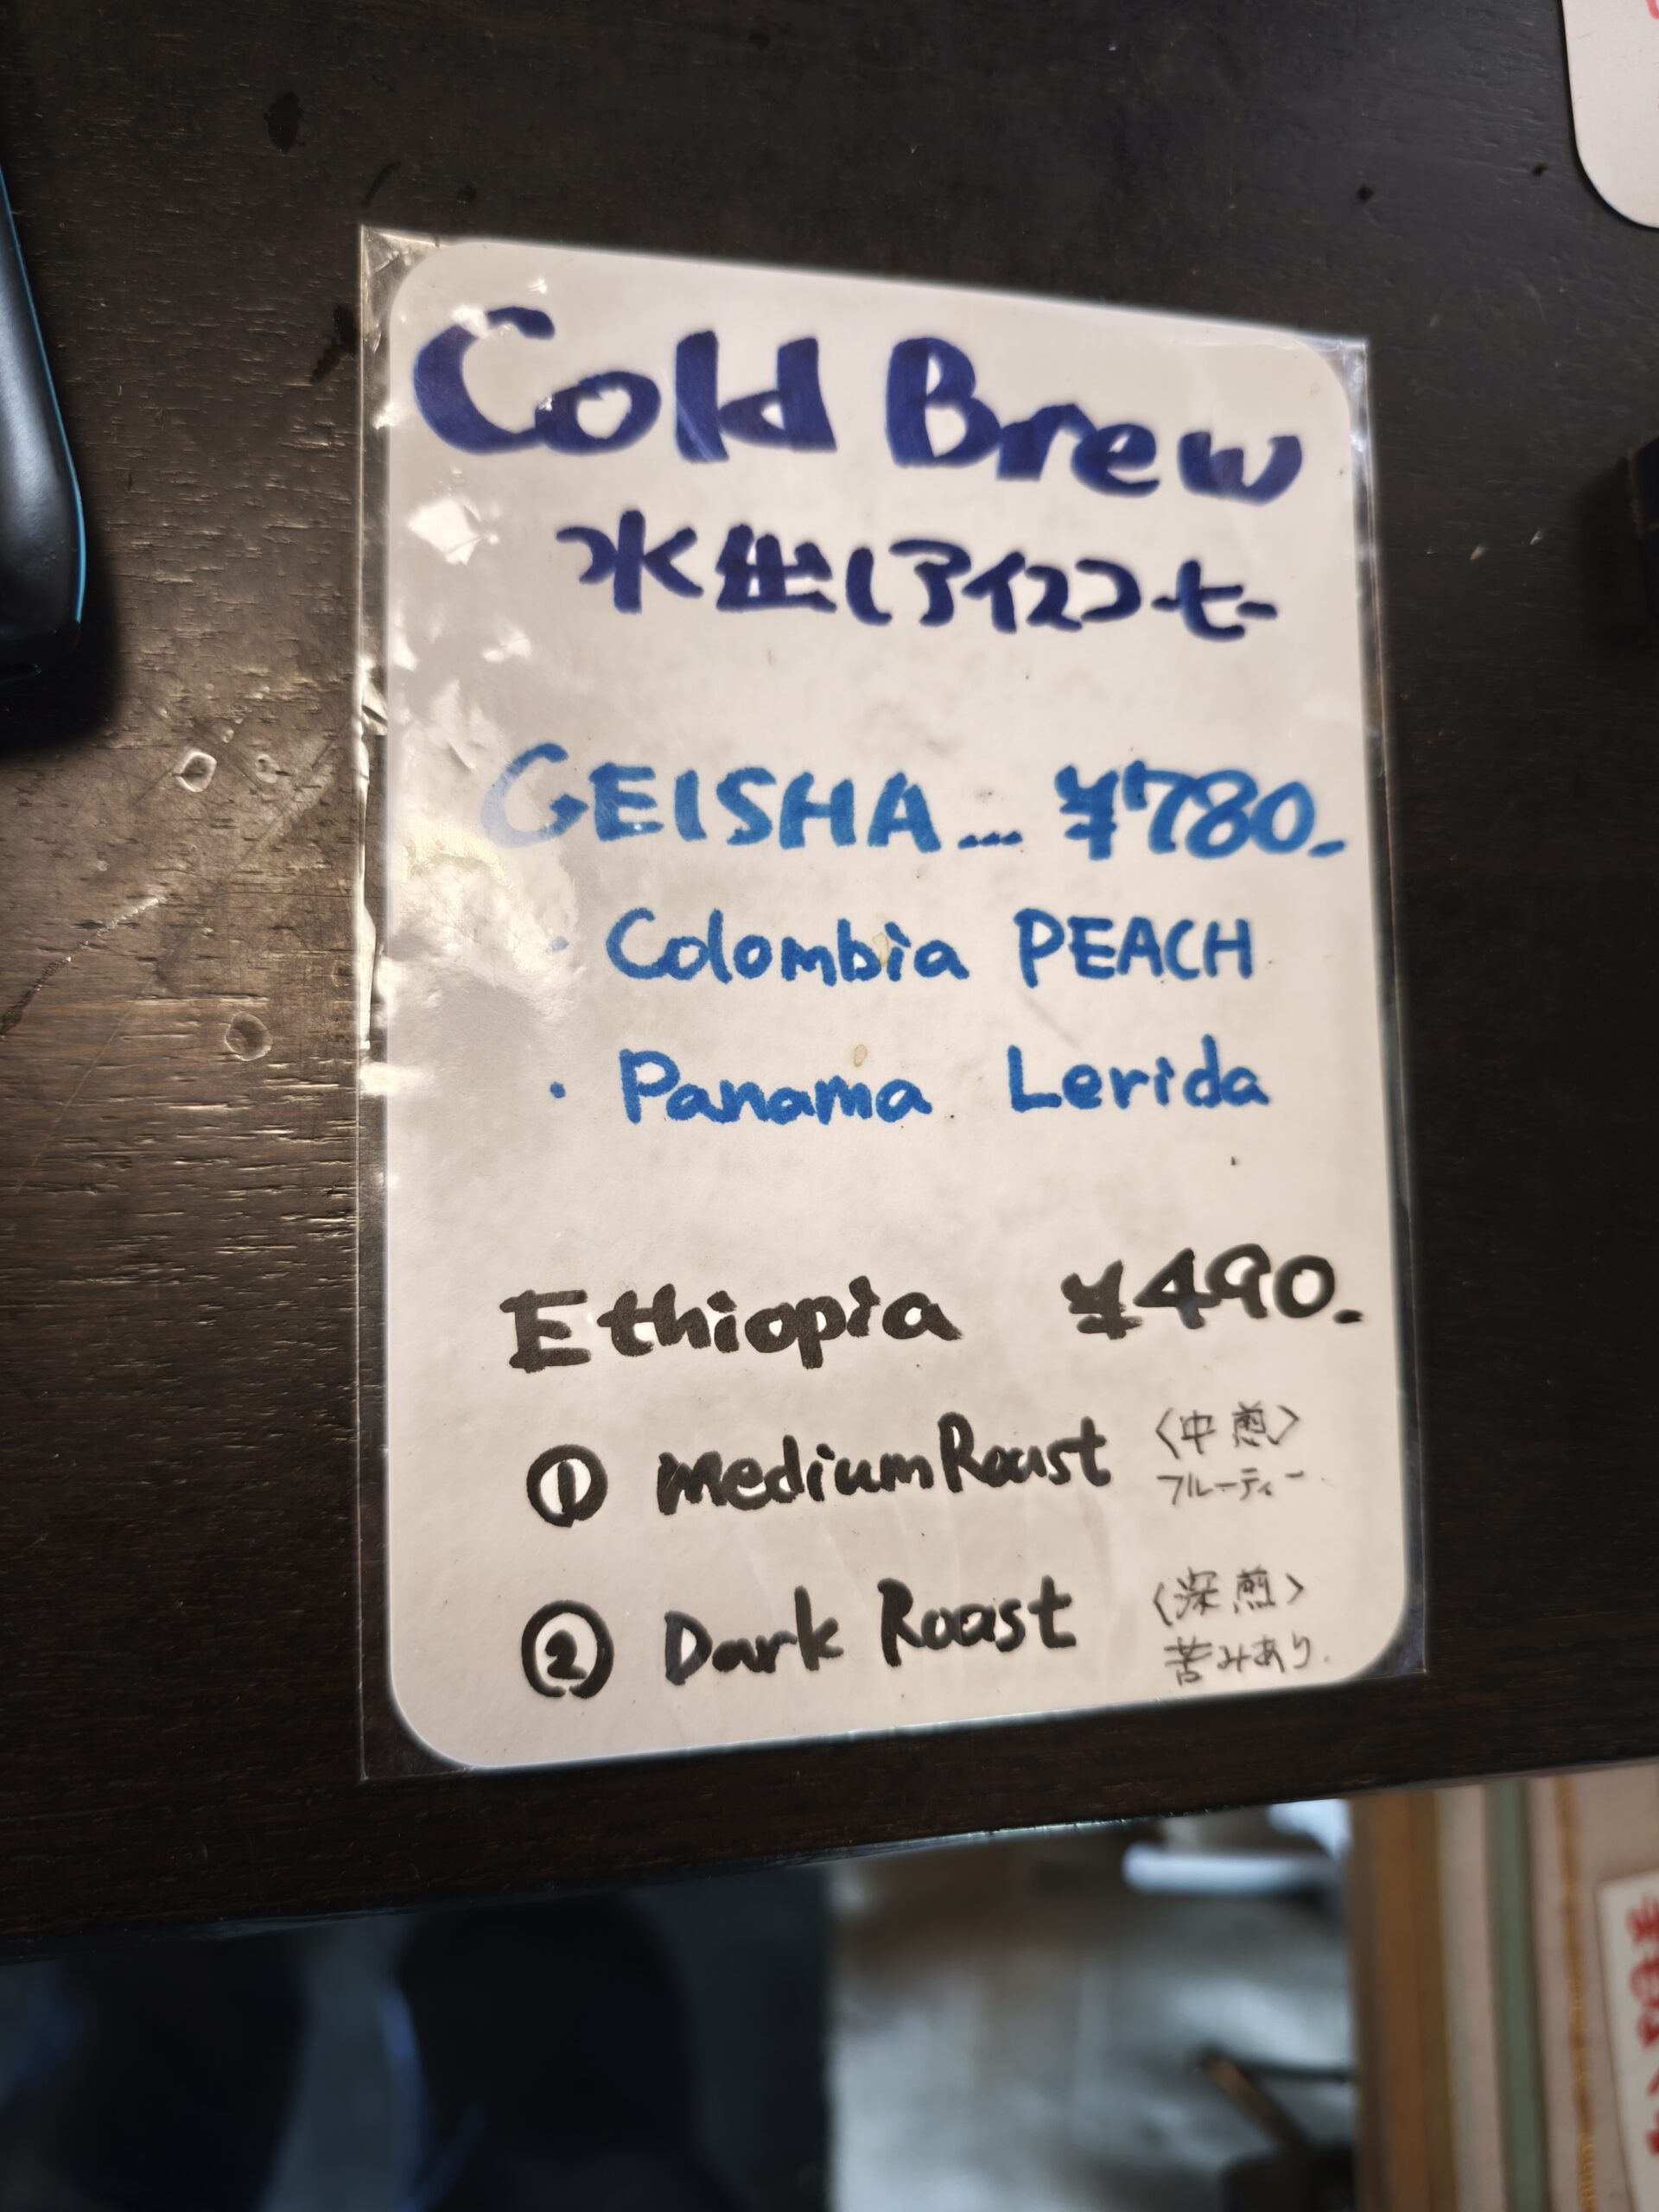 Cold Brew
水出しアイスコーヒー
GEISHA … ¥780.-
・Colombia PEACH
・Panama Lerida
Ethiopia ¥490.-
① Medium Roast 〈中煎〉
フルーティー
② Dark Roast 〈深煎〉
苦みあり.